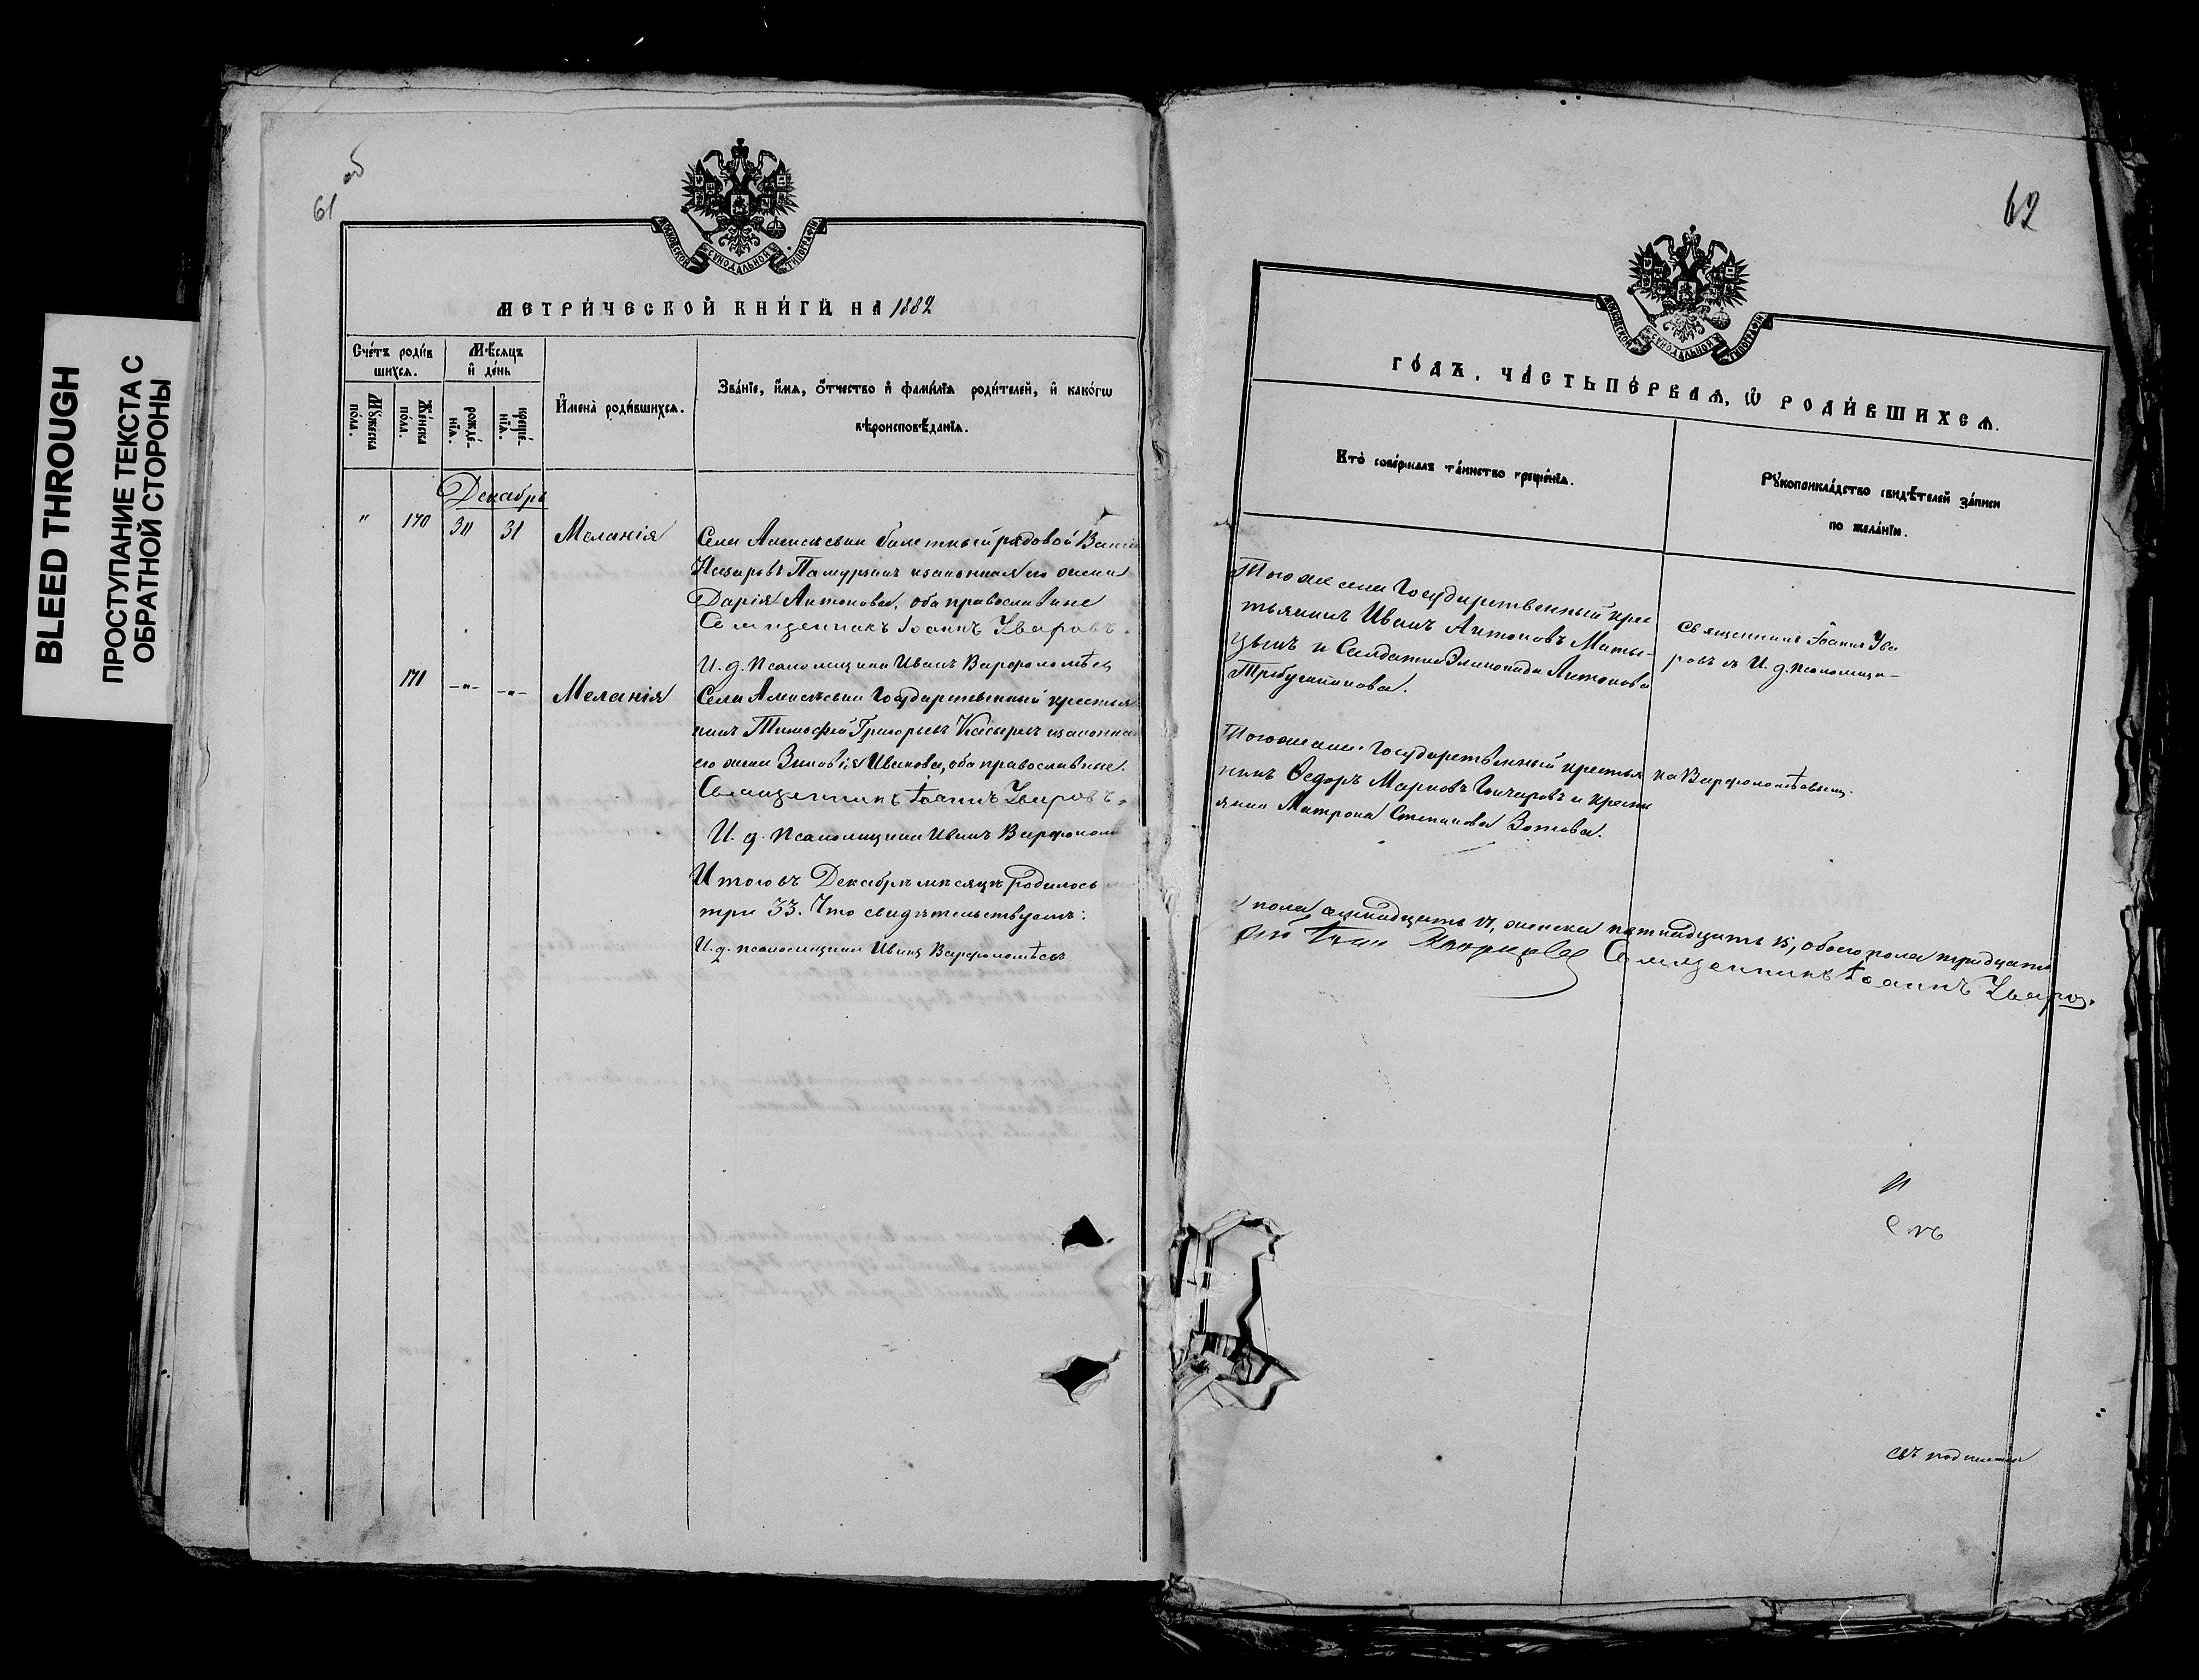 BLEED THROUGH
ПРОСТУПАНИЕ ТЕКСТА С
ОБРАТНОЙ СТОРОНЫ
61 об
МОСКОВСКОЙ СѴНОДАЛЬНОЙ ТИПОГРАФІИ
МЕТРИ́ЧЕСКОЙ КНИ́ГИ НА 1882
Сче́тъ роди́в
шихся.
Мѣ́сяцъ
и҆ де́нь
Мꙋ́жеска
по́ла.
Же́нска
по́ла.
рожде́-
нїѧ.
креще́-
нїѧ.
И҆мена̀ роди́вшихся.
Зва́нїе, и҆́мѧ, ѻ҆́тчество и҆ фами́лїѧ роди́телей, и҆ како́гѡ
вѣроисповѣ́данїѧ.
Декабрь
" 170 30 31 Меланія
Села Алексѣевки билетный рядовой
Назаровъ и законная его жена
Дарія Антонова, оба православные
Священникъ Іоаннъ Уваровъ.
И. д. псаломщика Иванъ Варфоломѣев
171 -"- -"- Меланія
Села Алексѣевки Государственный крестья
нинъ Тимофей Григорьевъ и законная
его жена Зиновія Иванова, оба православные.
Священникъ Іоаннъ Уваровъ.
И. д. псаломщика Иванъ Варфоломе
Итого въ Декабрѣ мѣсяцѣ родилось
три 33. Что свидѣтельствуемъ:
И. д. псаломщика Иванъ Варфоломѣевъ
62
МОСКОВСКОЙ СѴНОДАЛЬНОЙ ТИПОГРАФІИ
ГО́ДЪ, ЧА́СТЬ ПЕ́РВАѦ, Ѡ҆ РОДИ́ВШИХСѦ.
Кто̀ соверша́лъ та́инство креще́нїѧ.
Рꙋкоприкла́дство свидѣ́телей за́писи
по жела́нїю.
Того же села Государственный крес
тьянинъ Иванъ Антоновъ
и Солдатка Антонова
Священникъ Іоаннъ Ува
ровъ и И. д. псаломщи-
Того же села Государственный крестья
нинъ Ѳедоръ Марковъ Гончаровъ и крестья
янка Матрона Степанова Зотова.
ка Варфоломѣевъ.
пола 17, женска пятнадцать 15, обоего пола тридцать
Священникъ Іоаннъ Уваров.